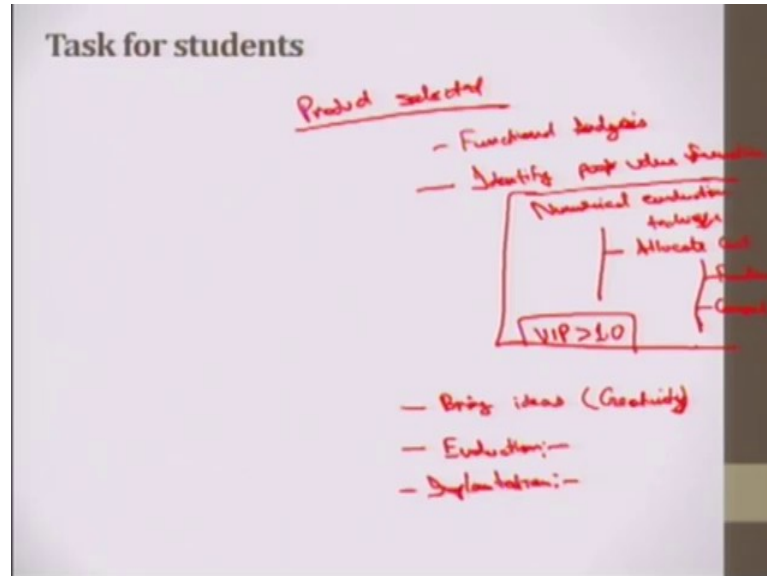 Task for students
Product selected
- Functional Analysis
- Identify poor value function
Numerical evaluation
technique
Allocate cost
VIP>1.0
- Bring ideas (Creativity)
- Evaluation:-
- Implantation:-